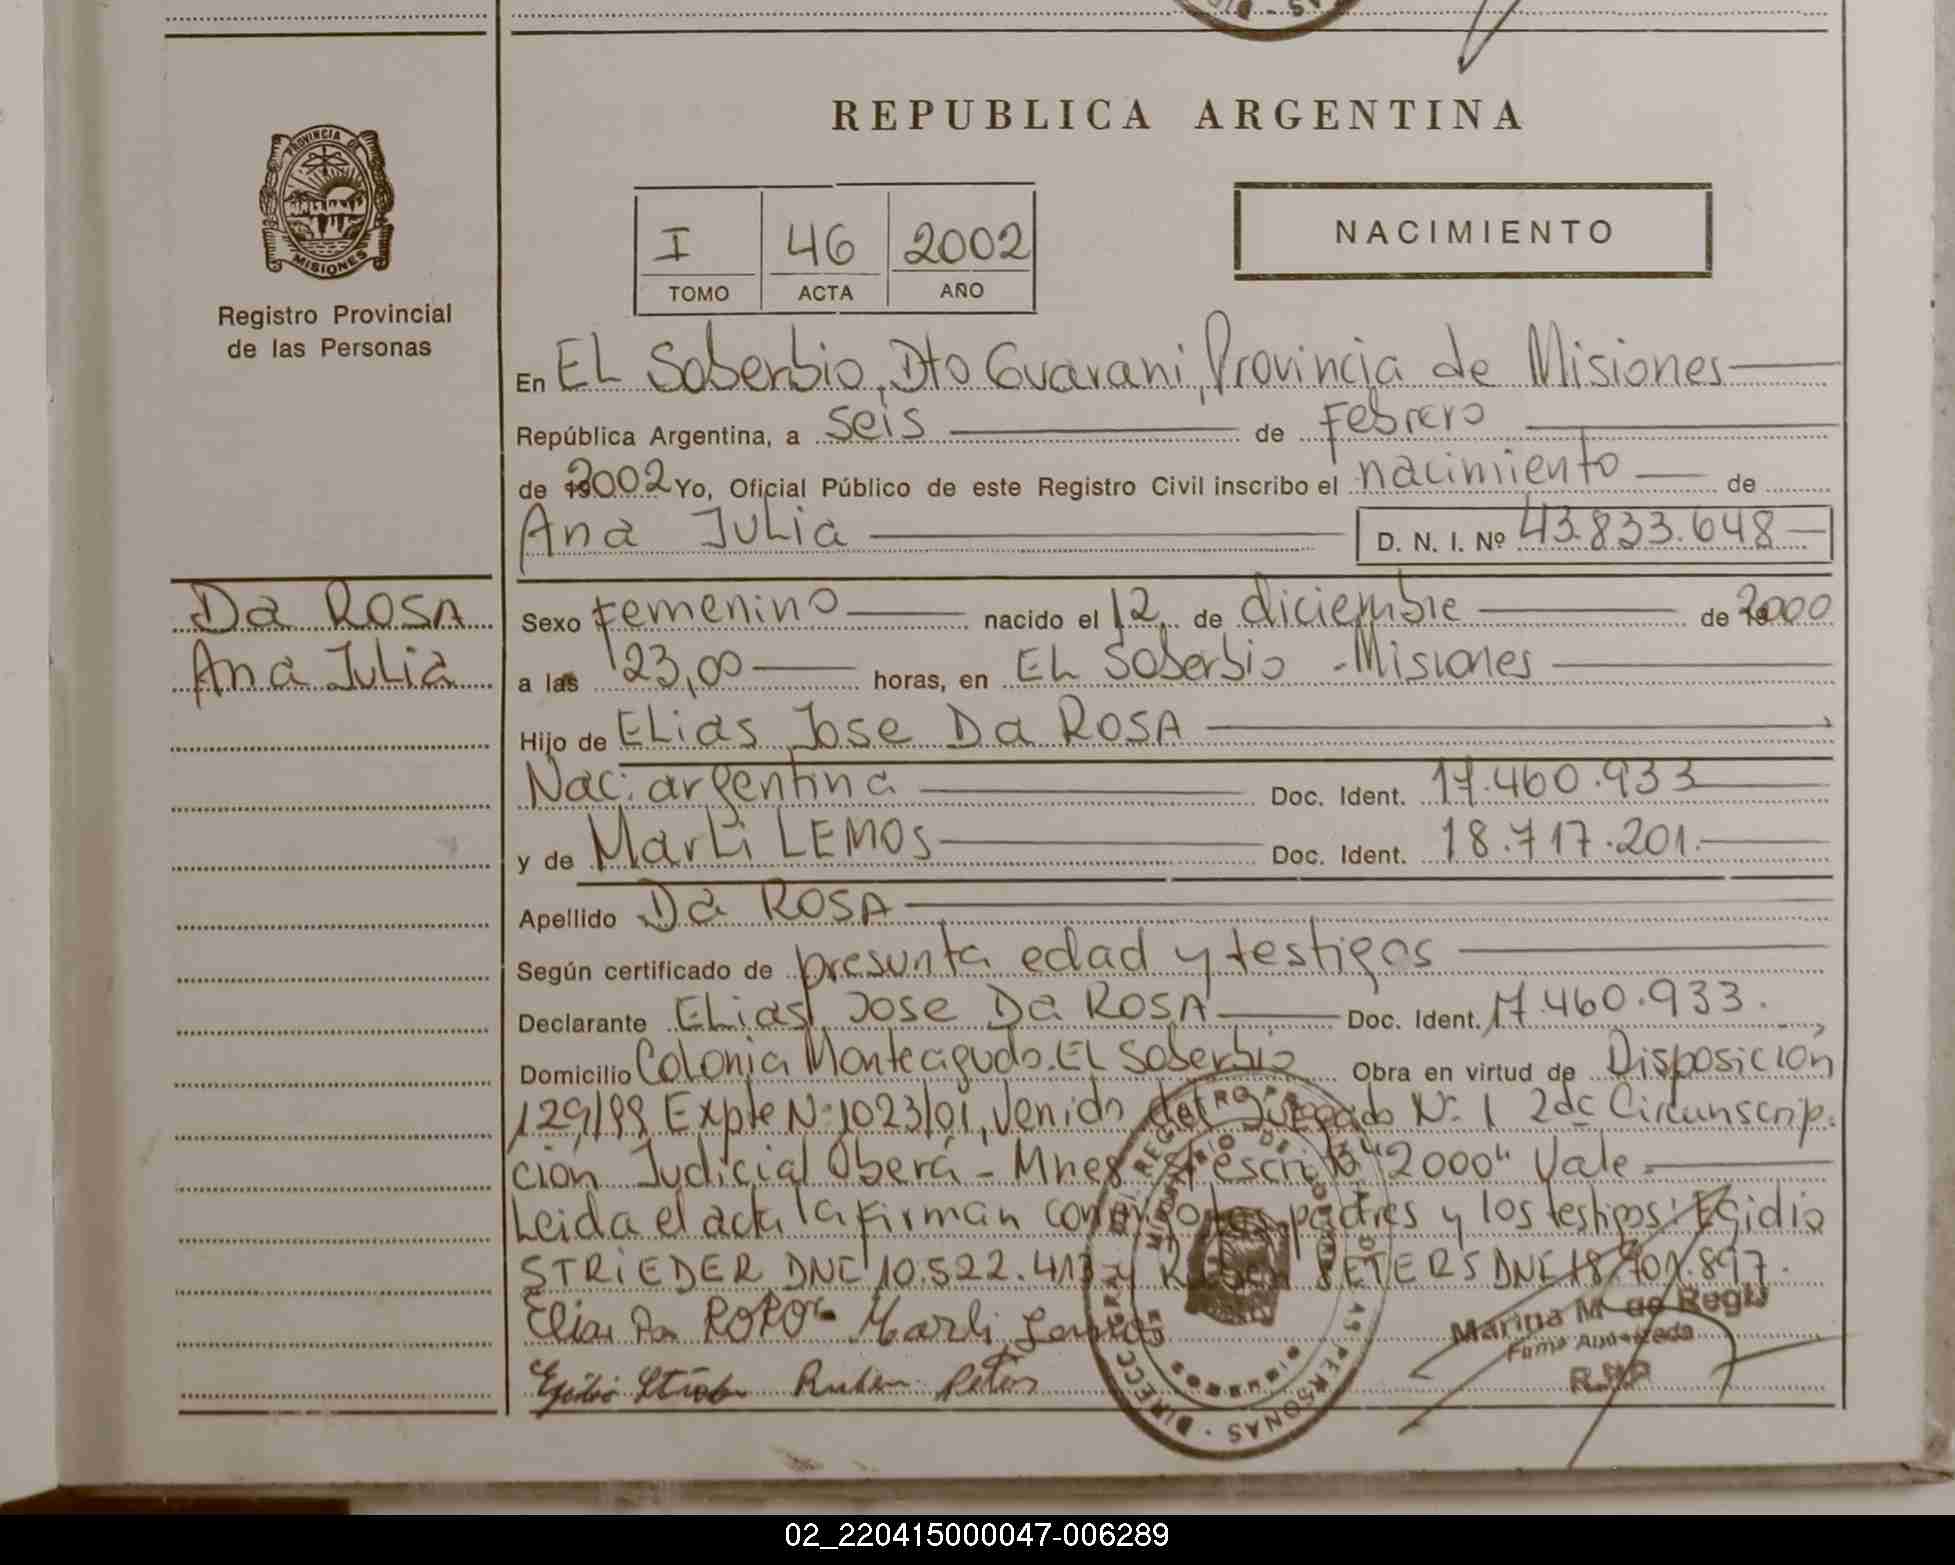 REPUBLICA ARGENTINA
PROVINCIA DE
MISIONES
Registro Provincial
de las Personas
I 46 2002
TOMO ACTA AÑO
NACIMIENTO
En EL Soberbio, Dto Guarani, Provincia de Misiones
República Argentina, a seis de Febrero
de 2002 Yo, Oficial Público de este Registro Civil inscribo el nacimiento de
Ana Julia D. N. I. Nº 43.833.648
Da ROSA
Ana Julia
Sexo Femenino nacido el 12 de diciembre de 2000
a las 23,00 horas, en EL Soberbio - Misiones
Hijo de ELias Jose Da ROSA
Nac: argentina Doc. Ident. 17.460.933
y de Marli LEMOS Doc. Ident. 18.717.201.
Apellido Da ROSA
Según certificado de presunta edad y testigos
Declarante ELias Jose Da ROSA Doc. Ident. 17.460.933.
Domicilio Colonia Monteagudo. EL Soberbio Obra en virtud de Disposición
129/99 Expte Nº 1023/01, Venido del Juzgado Nº 1 2da Circunscrip.
ción Judicial Oberá - Mnes S/escrito "2000" Vale
Leida el acta la firman conmigo los padres y los testigos: Egidio
STRIEDER DNI 10.522.413 y Ruben PETERS DNI 18.701.897.
Elias Da ROSA Marli Lemos
Egidio Strieder Ruben Peters
Marina M. de Regis
Firma Autorizada
R.P.P
02_220415000047-006289